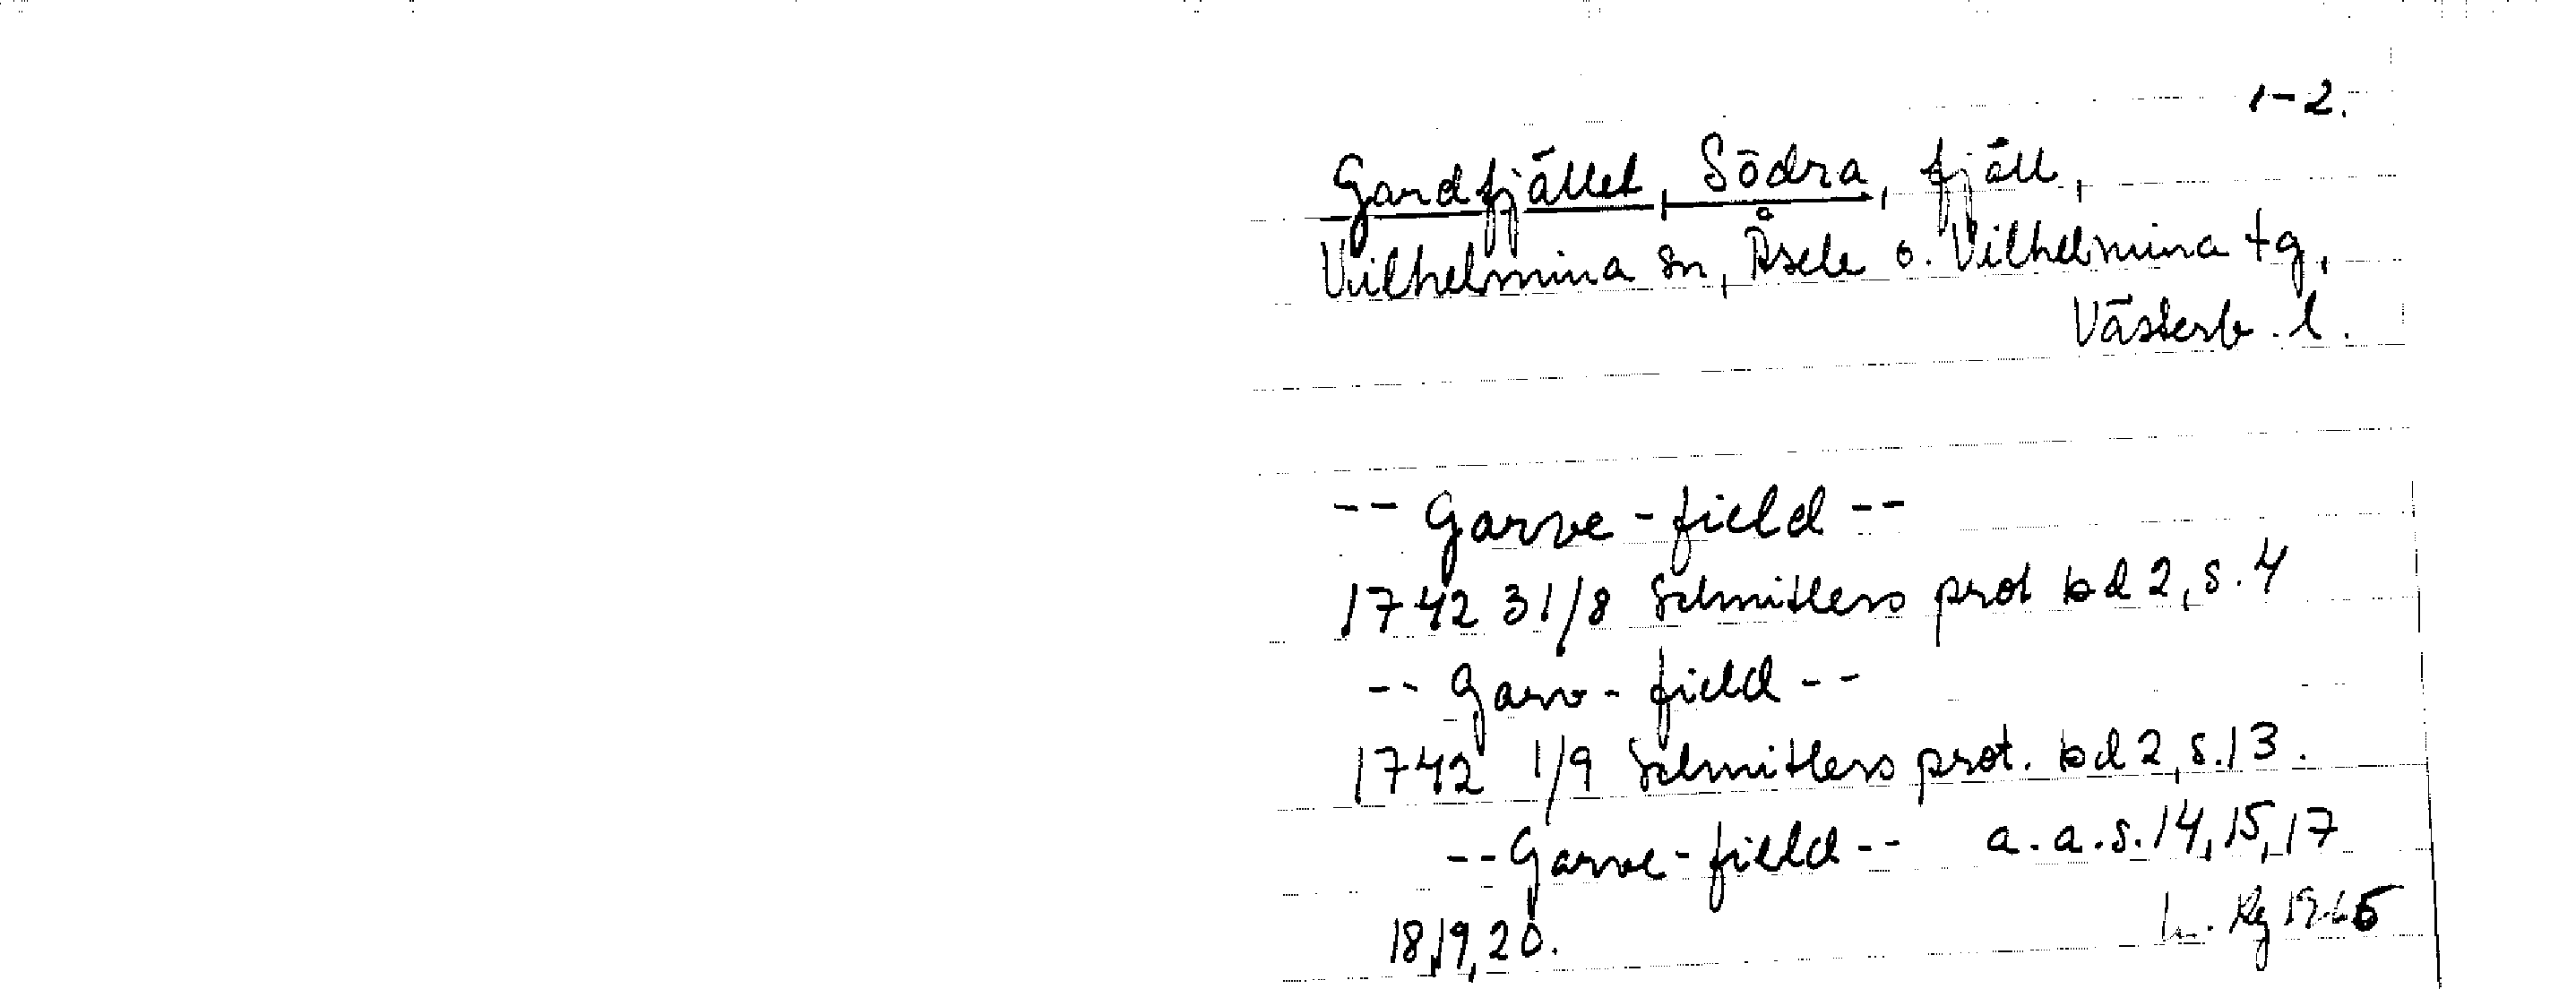 1-2.
Gardfjället, Södra, fjäll,
Vilhelmina sn, Åsele o. Vilhelmina tg,
Västerb. l.
-- Garve-field --
1742 31/8 Schnitlers prot bd 2, s. 4
-- Garv-field --
1742 1/9 Schnitlers prot. bd 2, s. 13.
-- Garve-field -- a.a.s. 14, 15, 17
18, 19, 20.
Rg 1965